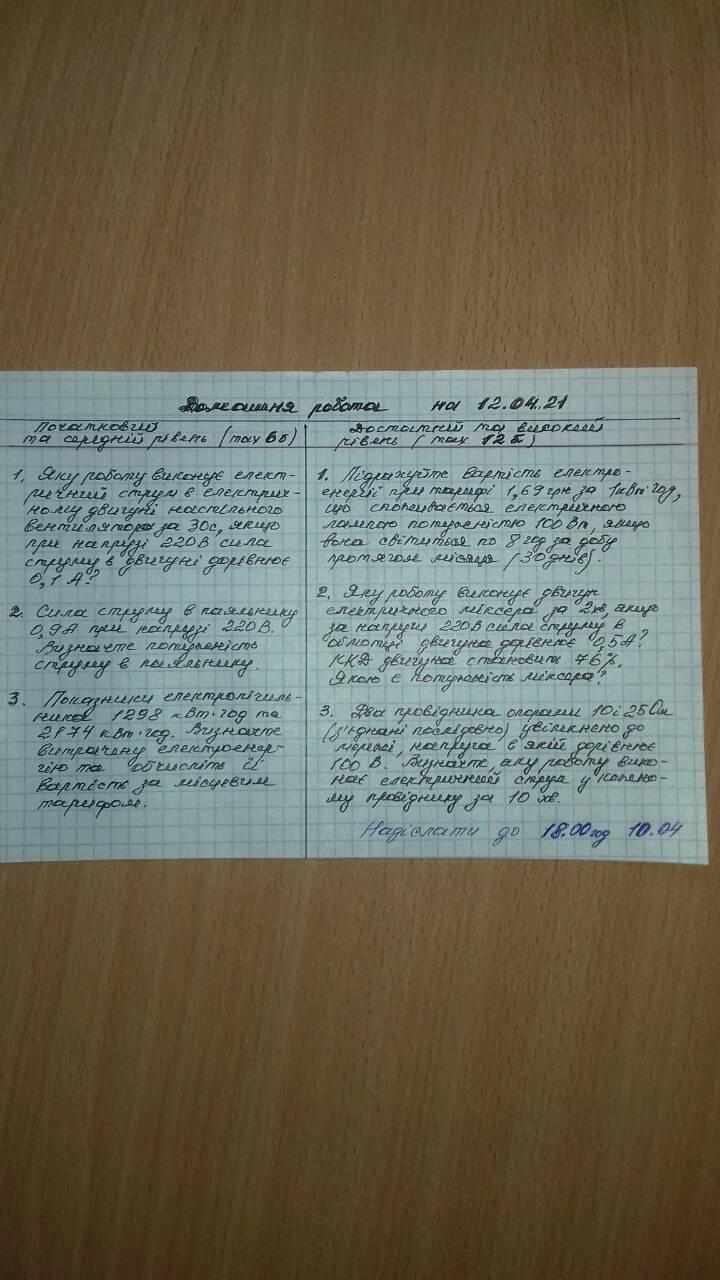 Домашня робота на 12.04.21
Початковий
та середній рівень (max 6б)
1. Яку роботу виконує елект-
ричний струм в електрич-
ному двигуні настільного
вентилятора за 30с, якщо
при напрузі 220В сила
струму в двигуні дорівнює
0,1 А?
2. Сила струму в паяльнику
0,9А при напрузі 220В.
Визначте потужність
струму в паяльнику.
3. Показники електролічиль-
ника 1298 кВт·год та
2174 кВт·год. Визначте
витрачену електроенер-
гію та обчисліть її
вартість за місцевим
тарифом.
Достатній та високий
рівень (max 12б)
1. Підрахуйте вартість електро-
енергії при тарифі 1,69 грн за 1кВт·год,
що споживається електричною
лампою потужністю 100 Вт, якщо
вона світиться по 8 год за добу
протягом місяця (30 днів).
2. Яку роботу виконує двигун
електричного міксера за 2хв, якщо
за напруги 220В сила струму в
обмотці двигуна дорівнює 0,5А?
ККД двигуна становить 76%.
Якою є потужність міксера?
3. Два провідника опорами 10 і 25 Ом
(з'єднані послідовно) увімкнено до
мережі, напруга в якій дорівнює
100 В. Визначте, яку роботу вико-
нає електричний струм у кожно-
му провіднику за 10 хв.
Надіслати до 18.00 год 10.04